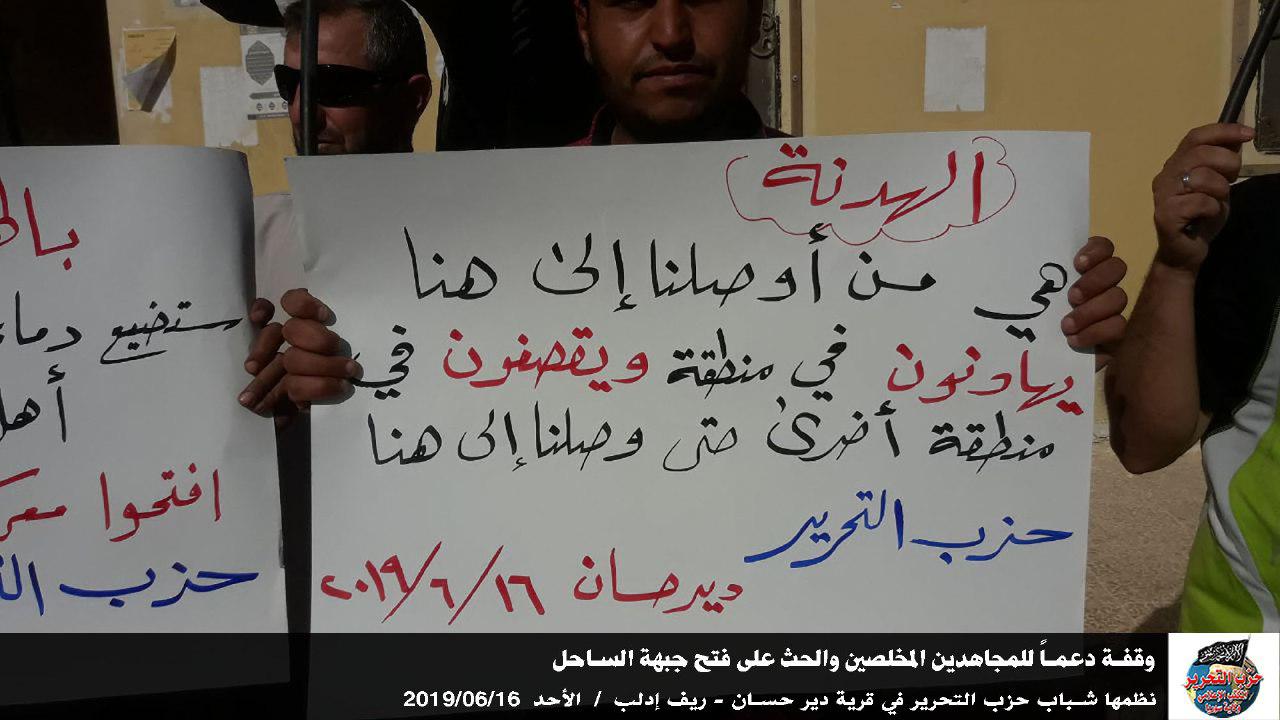 الهدنة
هي من أوصلنا إلى هنا
يهادنون في منطقة ويقصفون في
منطقة أخرى حتى وصلنا إلى هنا
حزب التحرير
ديرحسان ٢٠١٩/٦/١٦
ستضيع دماء
أهل
افتحوا معر
حزب ال
وقفة دعماً للمجاهدين المخلصين والحث على فتح جبهة الساحل
نظمها شباب حزب التحرير في قرية دير حسان - ريف إدلب / الأحد 2019/06/16
حزب التحرير
ولاية سوريا